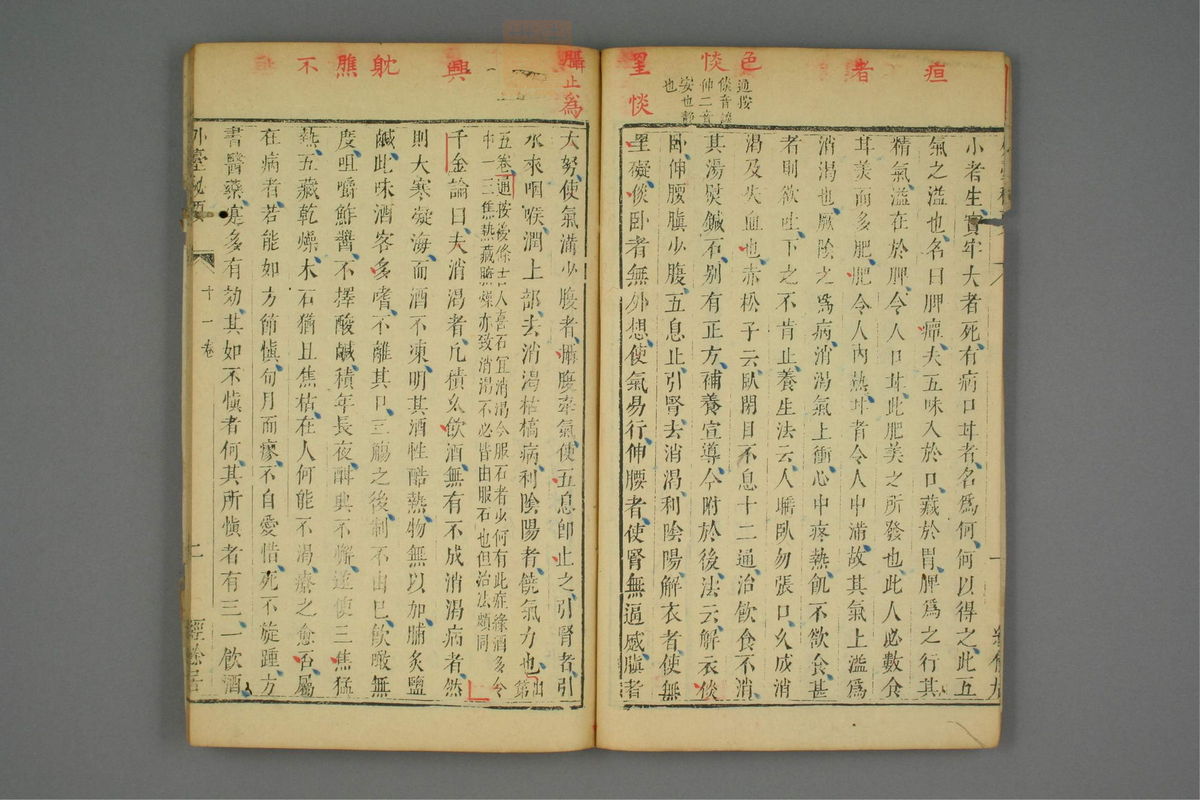 疸
者
色
惔
里
惔
適按
倓音談
伸二音
安也靜
也
小者生實牢大者死有病口甘者名爲何何以得之此五
氣之溢也名曰脾癉夫五味入於口藏於胃脾爲之行其
精氣溢在於脾令人口甘此肥美之所發也此人必數食
甘美而多肥肥令人內熱甘者令人中滿故其氣上溢爲
消渴也厥陰之爲病消渴氣上衝心中疼熱飢不欲食甚
者則欲吐下之不肯止養生法云人睡臥勿張口久成消
渴及失血也赤松子云臥閉目不息十二通治飲食不消
其湯熨鍼石别有正方補養宣導今附於後法云解衣倓
臥伸腰䐜少腹五息止引腎去消渴利陰陽解衣者使無
里礙倓臥者無外想使氣易行伸腰者使腎無逼蹙䐜者
躡止為
興
躭
膲
不
大努使氣滿少腹者攝腹牽氣使五息卽止之引腎者引
水來咽喉潤上部去消渴枯槁病利陰陽者饒氣力也出第
五卷通按
中一三焦熱藏腑燥亦致消渴不必皆由服石也但治法頗同
千金論曰夫消渴者凡積久飲酒無有不成消渴病者然
則大寒凝海而酒不凍明其酒性酷熱物無以加脯炙鹽
鹹此味酒客多嗜不離其口三觴之後制不由己飲噉無
度咀嚼鮓醬不擇酸鹹積年長夜酣興不懈遂使三焦猛
熱五藏乾燥木石猶且焦枯在人何能不渴療之愈否屬
在病者若能如方節慎旬月而瘳不自愛惜死不旋踵方
書醫藥寔多有効其如不愼者何其所愼者有三一飲酒
外臺秘要
十一卷
二
經餘居